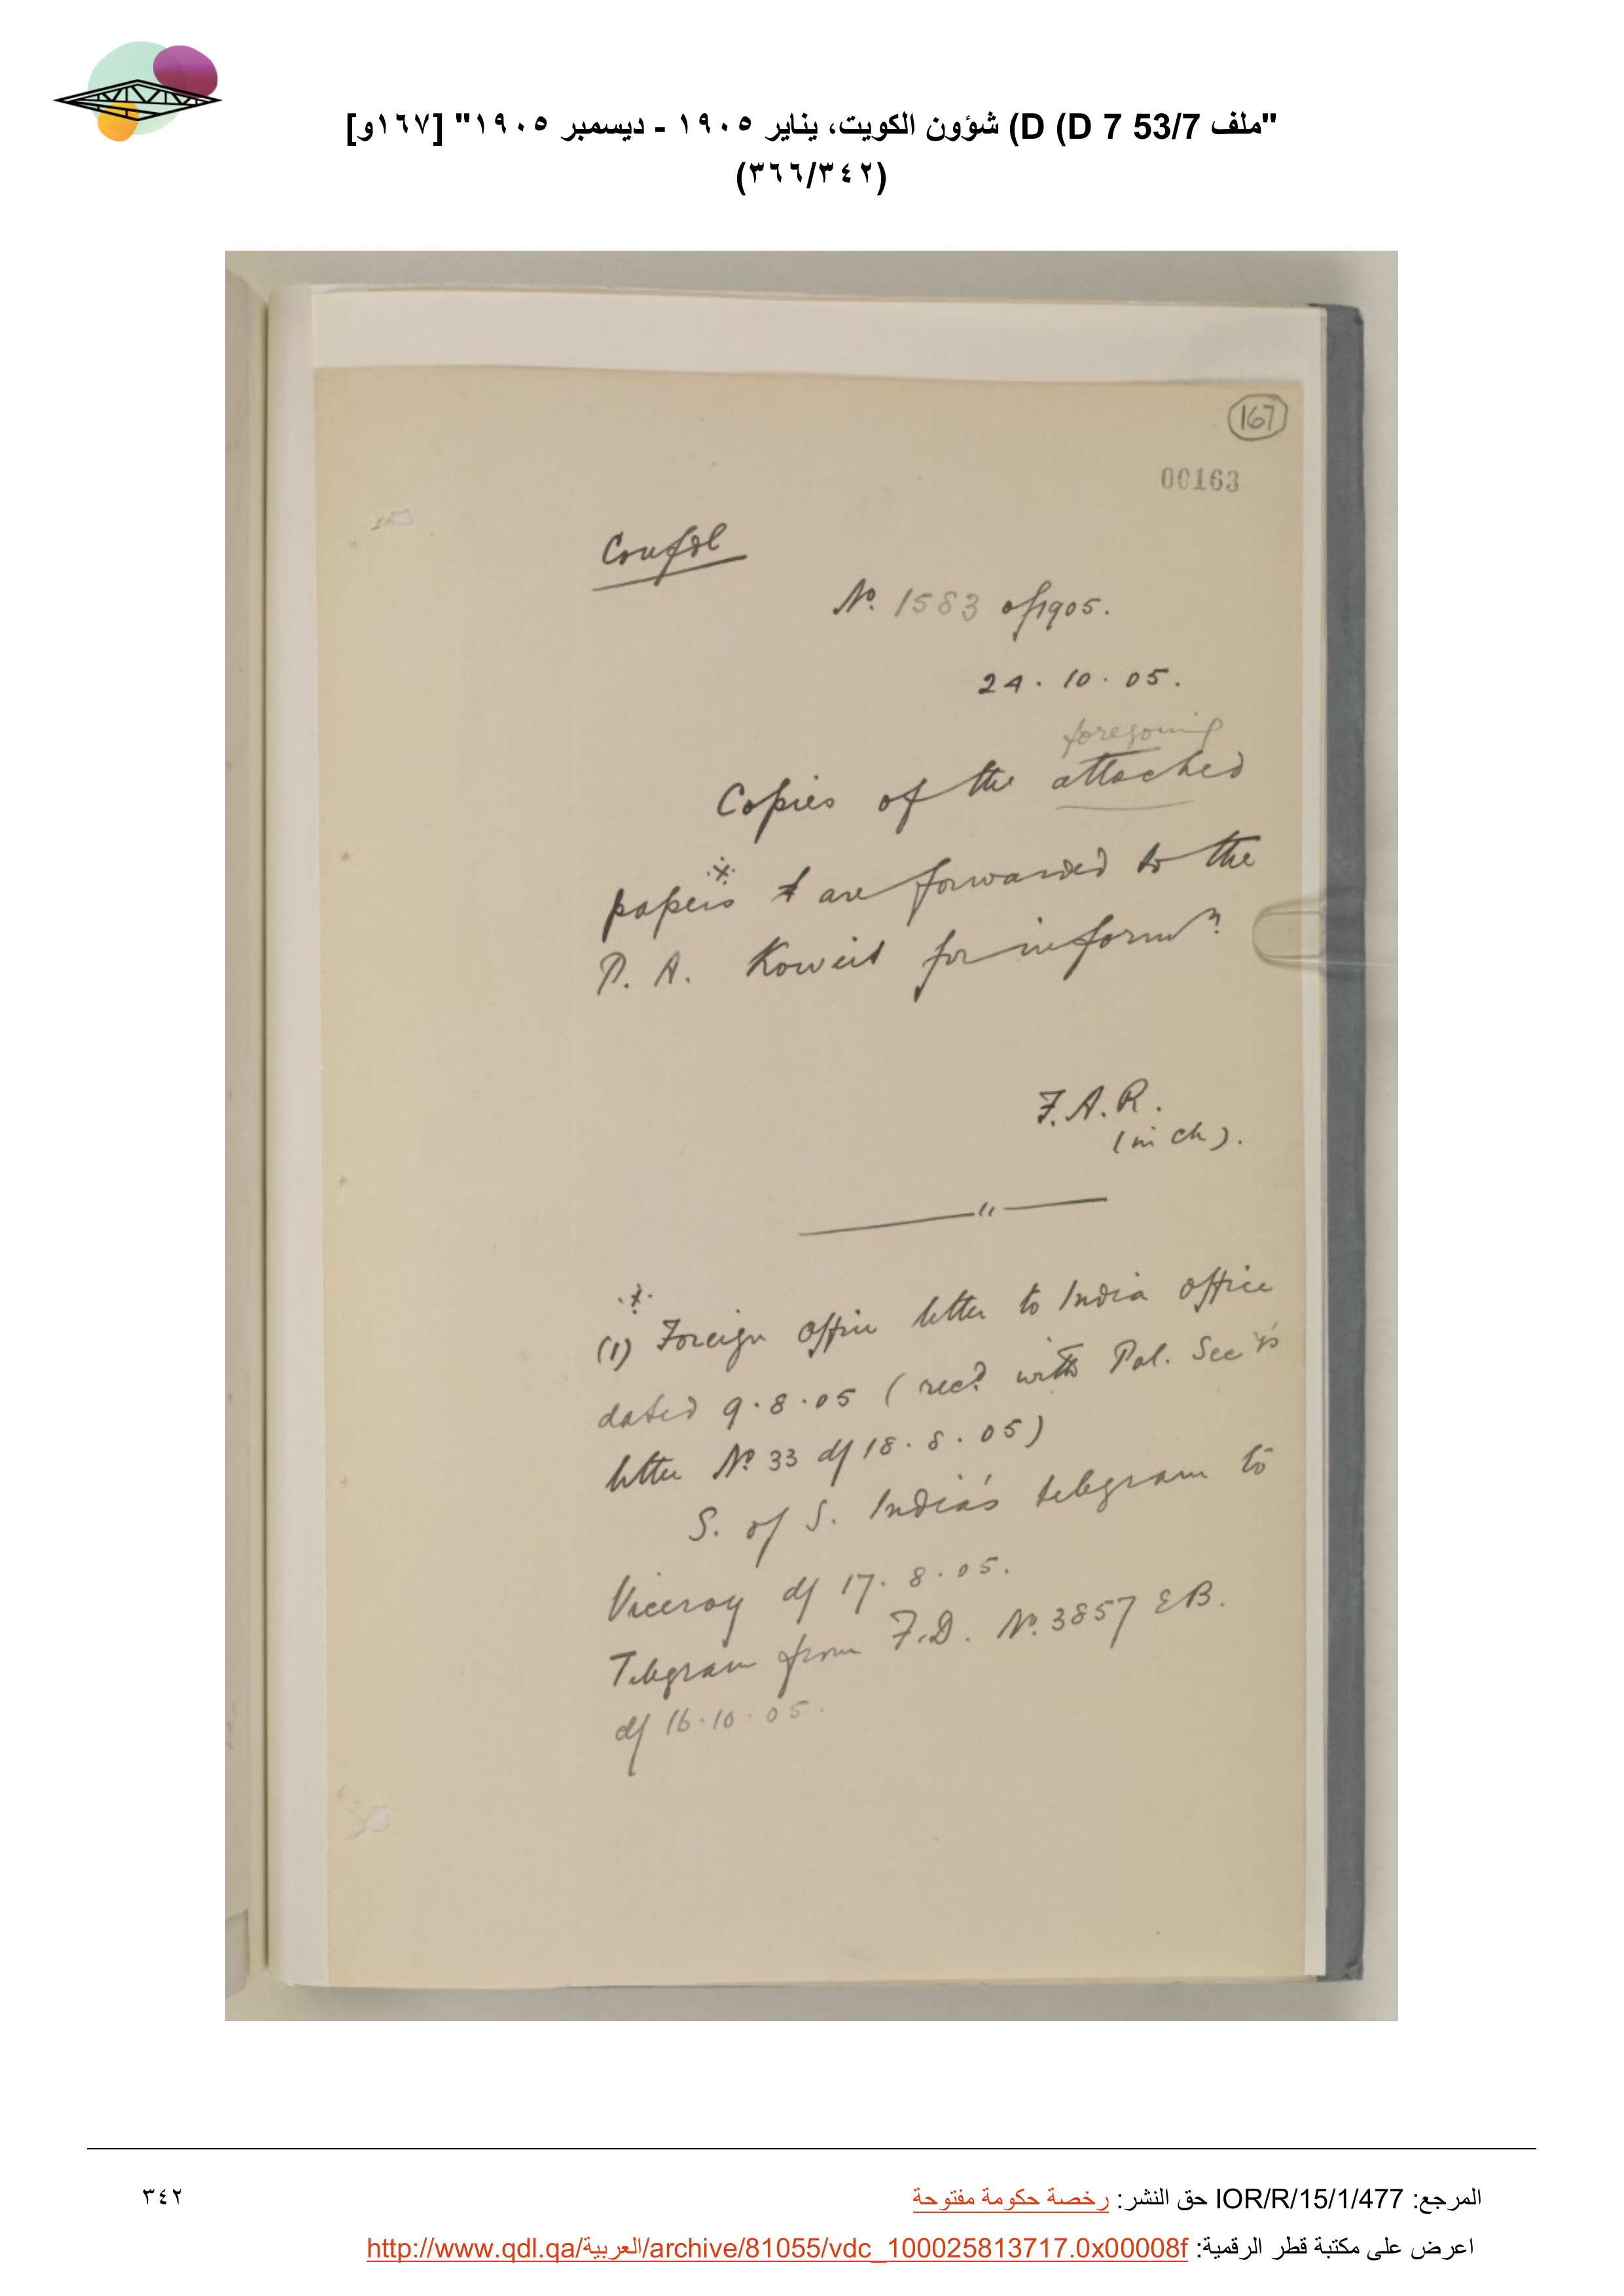 "ملف 53/7 D 7 D) شؤون الكويت، يناير ١٩٠٥ - ديسمبر ١٩٠٥" [١٦٧و]
(٣٦٦/٣٤٢)
167
00163
Confdl
No. 1583 of 1905.
24. 10. 05.
foregoing
Copies of the attached
papers are forwarded to the
P. A. Koweit for informn.
F. A. R.
(in ch).
(1) Foreign office letter to India office
dated 9.8.05 (recd. with Pol. Secy's
letter No. 33 d/ 18. 8. 05)
S. of S. India's telegram to
Viceroy d/ 17. 8. 05.
Telegram from F.D. No. 3857 EB.
d/ 16.10.05.
المرجع: IOR/R/15/1/477 حق النشر: رخصة حكومة مفتوحة
٣٤٢
اعرض على مكتبة قطر الرقمية: http://www.qdl.qa/العربية/archive/81055/vdc_100025813717.0x00008f